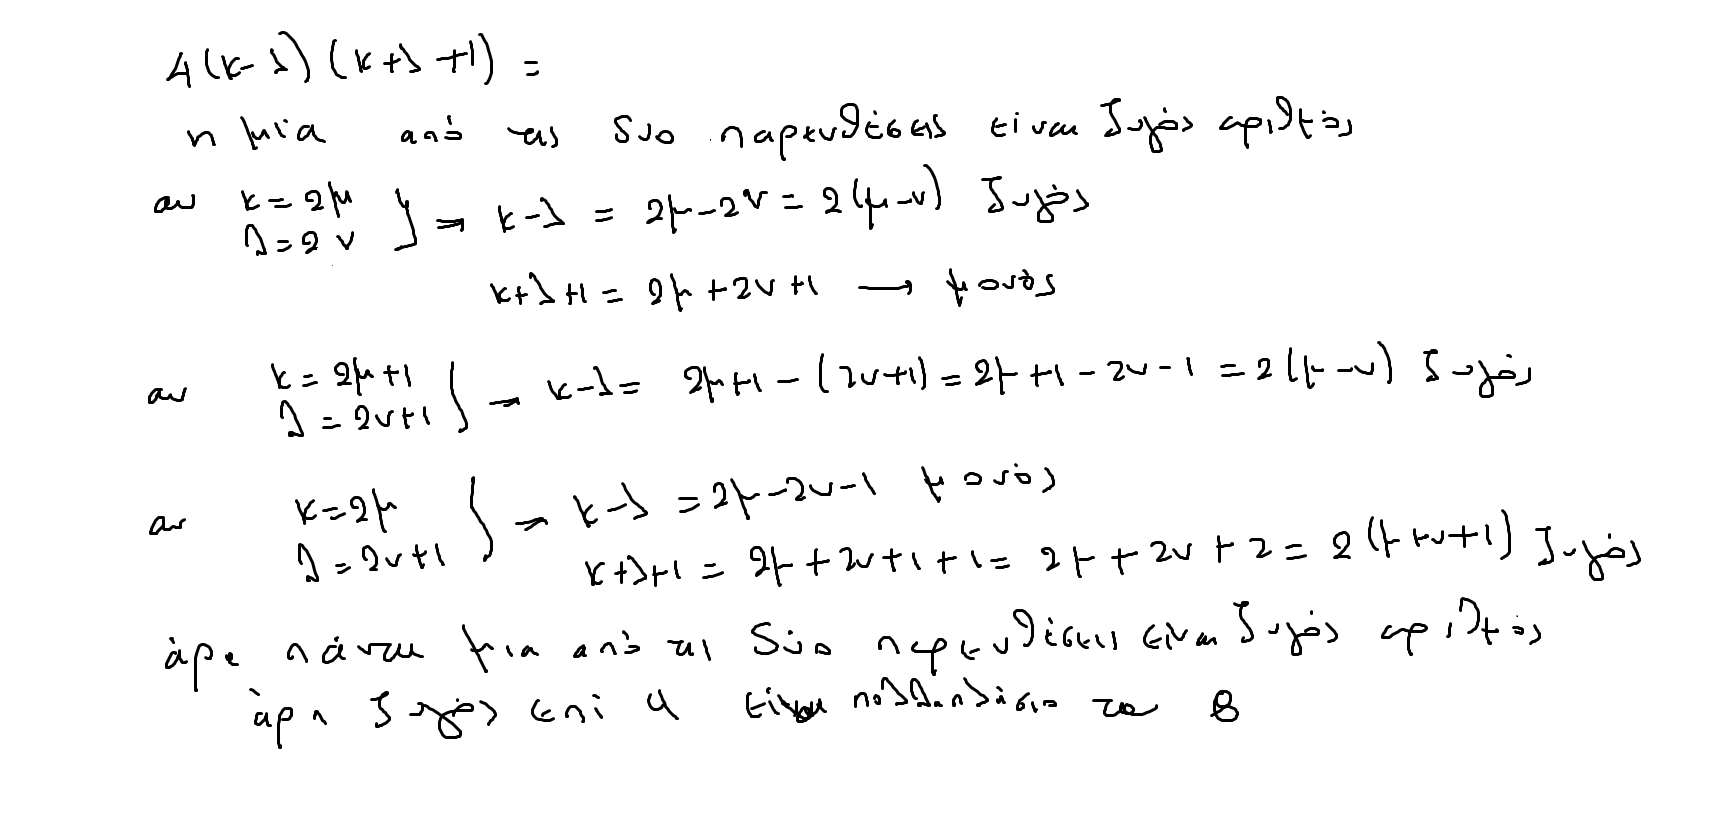 4(κ-λ)(κ+λ+1) =
η μία από τις δυο παρενθέσεις είναι ζυγός αριθμός
αν κ=2μ λ=2ν } → κ-λ = 2μ-2ν = 2(μ-ν) ζυγός
κ+λ+1 = 2μ+2ν+1 → μονός
αν κ=2μ+1 λ=2ν+1 } → κ-λ = 2μ+1-(2ν+1) = 2μ+1-2ν-1 = 2(μ-ν) ζυγός
αν κ=2μ λ=2ν+1 } → κ-λ = 2μ-2ν-1 μονός
κ+λ+1 = 2μ+2ν+1+1 = 2μ+2ν+2 = 2(μ+ν+1) ζυγός
άρα πάντα μια από τις δύο παρενθέσεις είναι ζυγός αριθμός
άρα ζυγός επί 4 είναι πολλαπλάσιο του 8